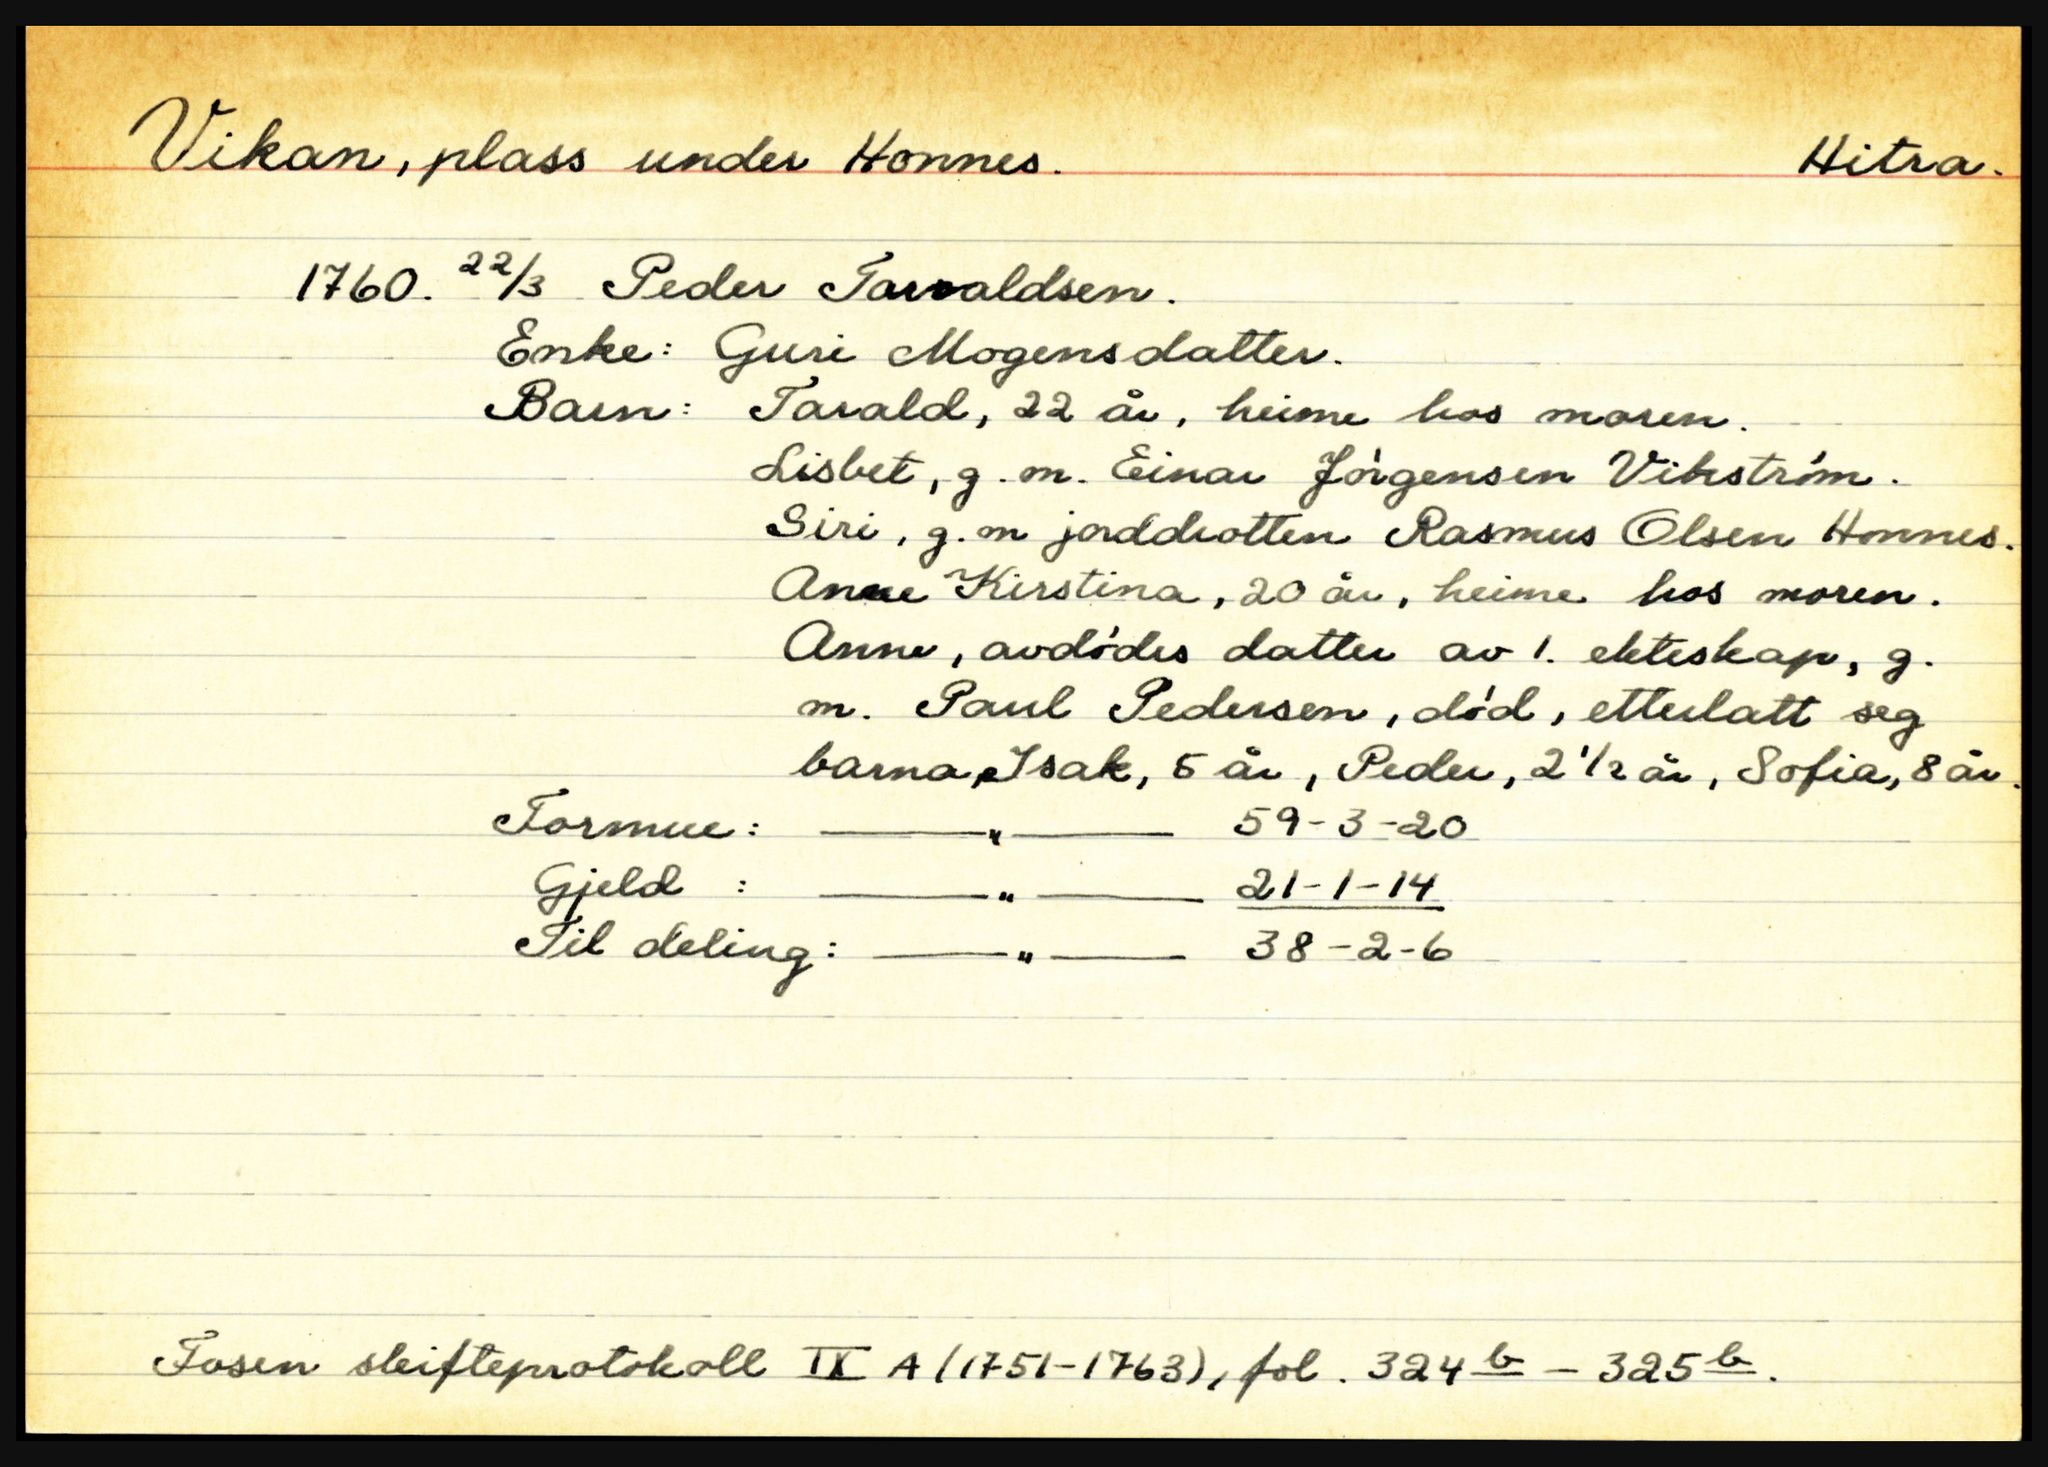 Vikan, plass under Honnes. Hitra.
1760. 22/3 Peder Tarvaldsen.
Enke: Guri Mogensdatter.
Barn: Tarald, 22 år, heime hos moren.
Lisbet, g. m. Einar Jörgensen Vikström.
Siri, g. m jorddrotten Rasmus Olsen Honnes.
Anne Kirstina, 20 år, heime hos moren.
Anne, avdödes datter av 1. ekteskap, g.
m. Paul Pedersen, död, etterlatt seg
barna, Isak, 5 år, Peder, 2 1/2 år, Sofia, 8 år.
Formue: —"— 59-3-20
Gjeld : —"— 21-1-14
Til deling: —"— 38-2-6
Fosen skifteprotokoll IX A (1751-1763), fol. 324 b - 325 b.